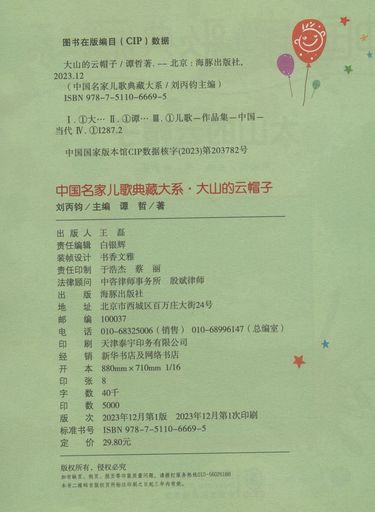 图书在版编目（CIP）数据
大山的云帽子 / 谭哲著. -- 北京：海豚出版社，
2023.12
（中国名家儿歌典藏大系 / 刘丙钧主编）
ISBN 978-7-5110-6669-5
Ⅰ. ①大… Ⅱ. ①谭… Ⅲ. ①儿歌－作品集－中国－
当代 Ⅳ. ①I287.2
中国国家版本馆CIP数据核字(2023)第203782号
中国名家儿歌典藏大系·大山的云帽子
刘丙钧 / 主编 谭 哲 / 著
出 版 人 王 磊
责任编辑 白银辉
装帧设计 书香文雅
责任印制 于浩杰 蔡 丽
法律顾问 中咨律师事务所 殷斌律师
出 版 海豚出版社
地 址 北京市西城区百万庄大街24号
邮 编 100037
电 话 010-68325006（销售） 010-68996147（总编室）
印 刷 天津泰宇印务有限公司
经 销 新华书店及网络书店
开 本 880mm×710mm 1/16
印 张 8
字 数 40千
印 数 5000
版 次 2023年12月第1版 2023年12月第1次印刷
标准书号 ISBN 978-7-5110-6669-5
定 价 29.80元
版权所有，侵权必究
如有缺页、倒页、脱页等印装质量问题，请拨打服务热线010-56026168
本书二维码自版权页所标注印刷之日起三年内有效。